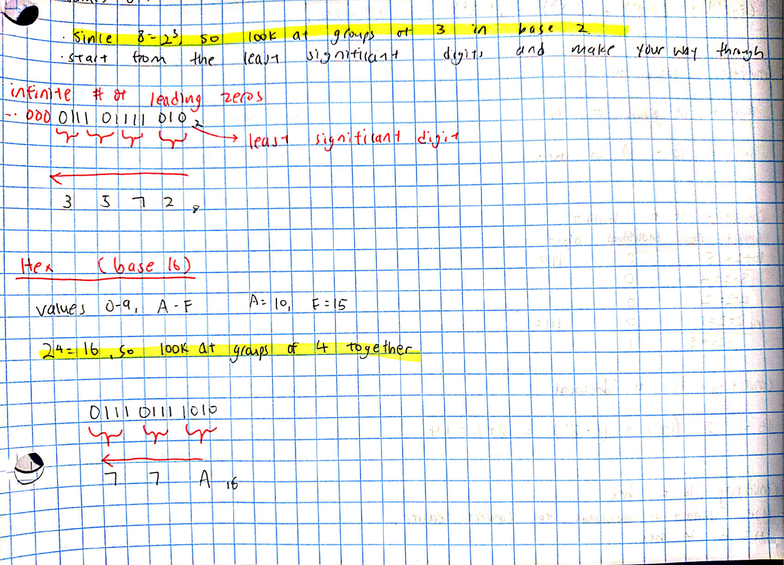 · Since 8=2³, so look at groups of 3 in base 2
· start from the least significant digits and make your way through
infinite # of leading zeros
... 000 0111 01111 010₂
→ least significant digit
3 5 7 2 ₈
Hex (base 16)
values 0-9, A-F A=10, F=15
2⁴=16, so look at groups of 4 together
0111 0111 1010
7 7 A ₁₆